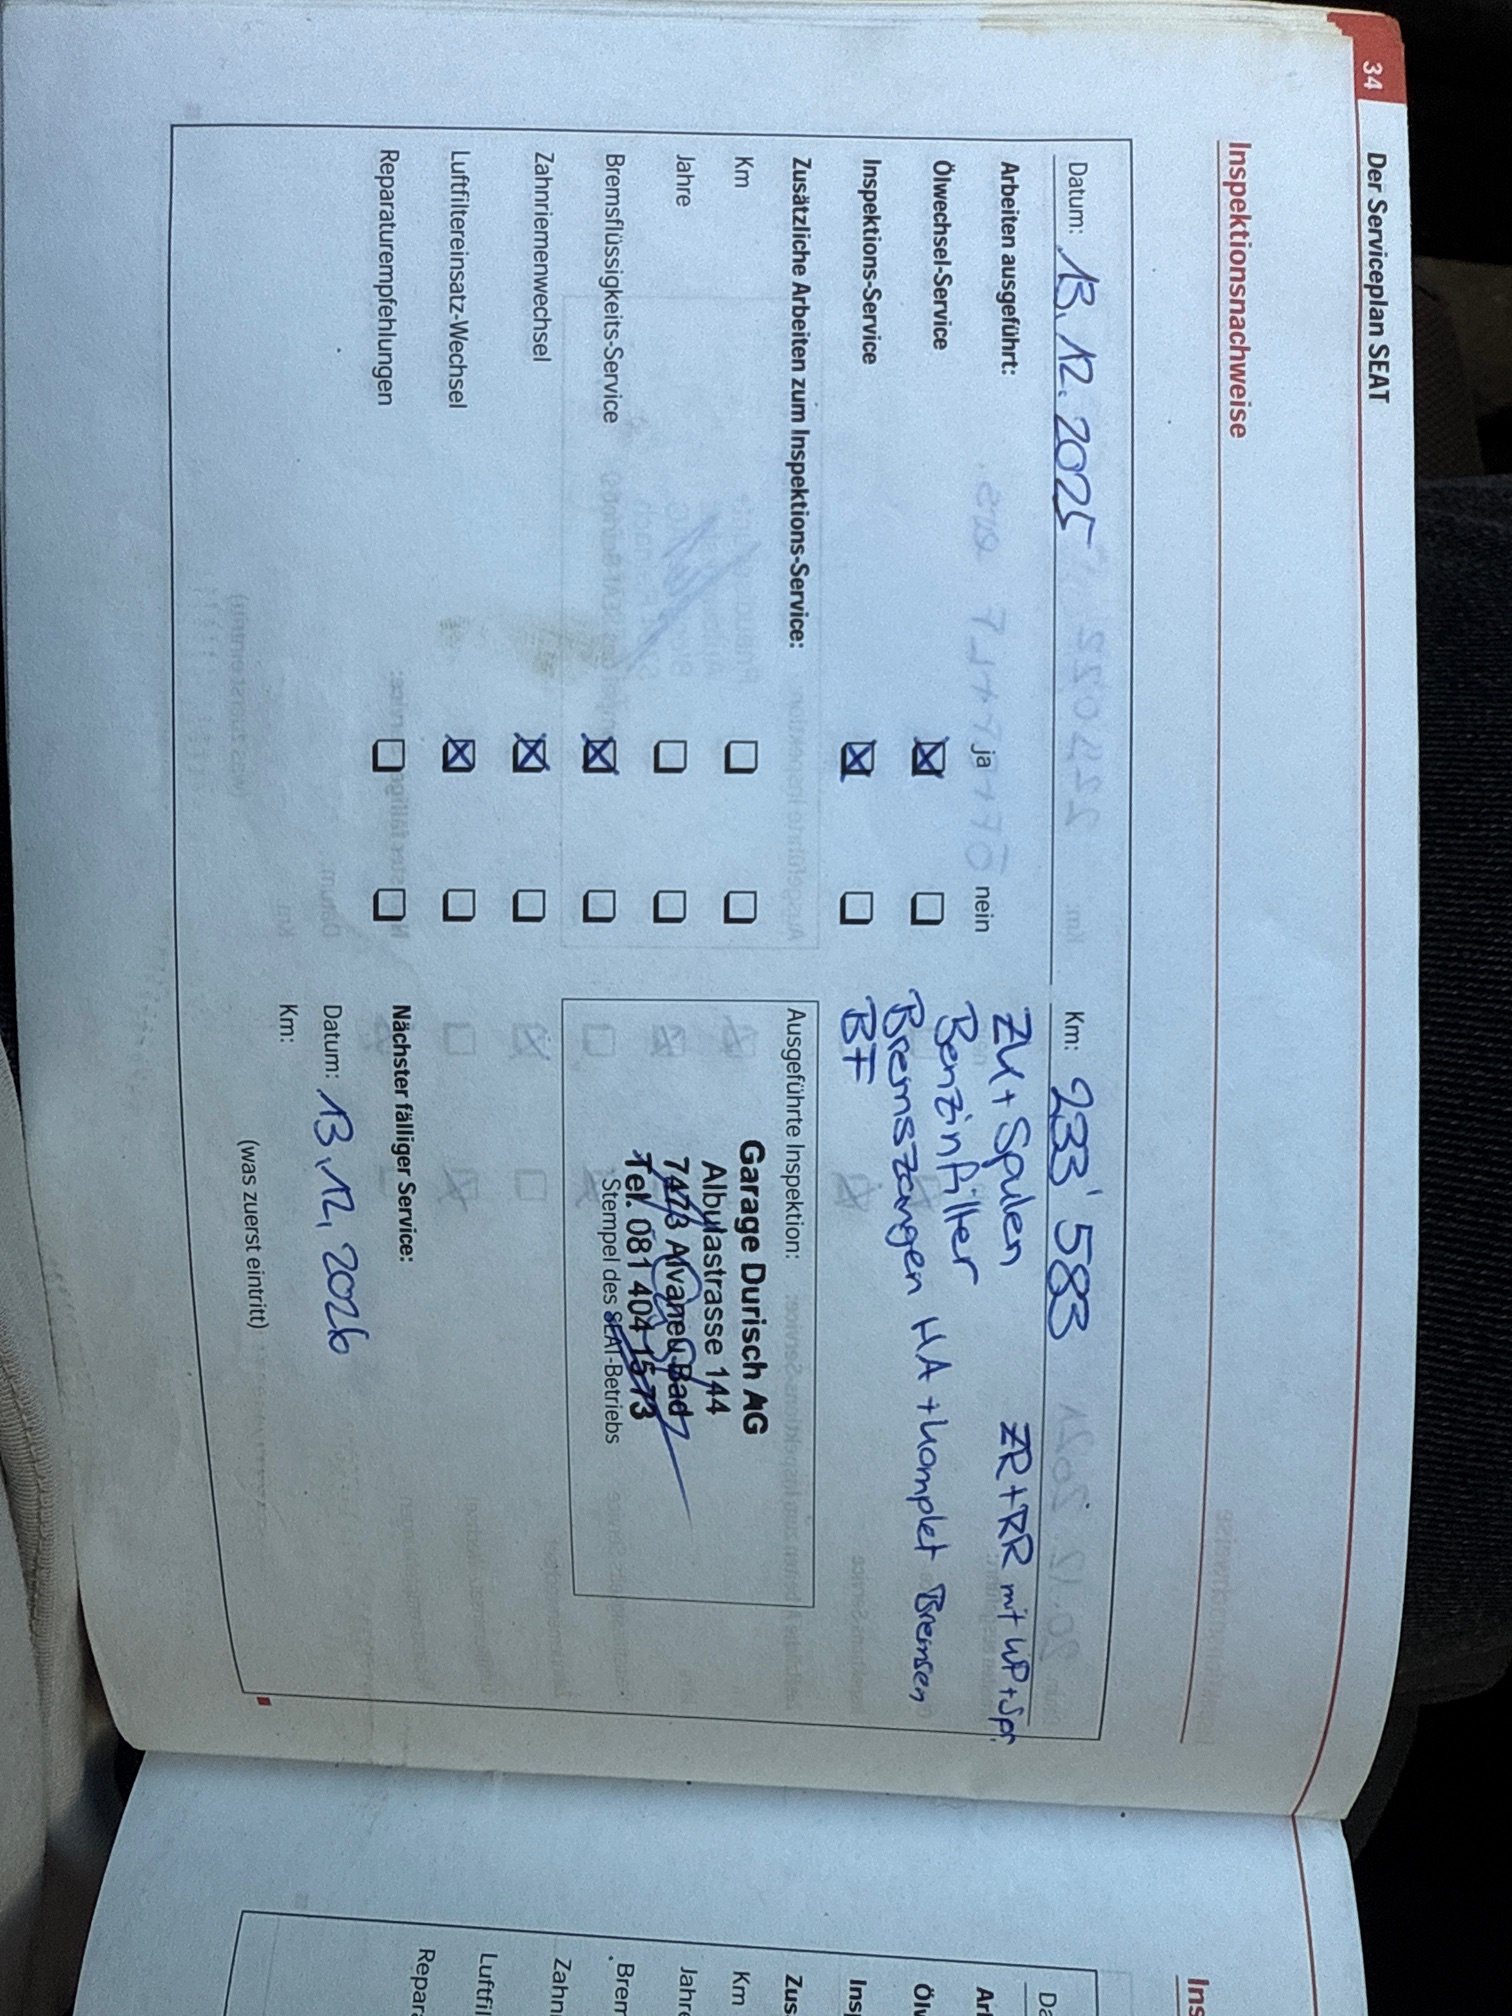 34
Der Serviceplan SEAT
Inspektionsnachweise
Datum: 13.12.2025 Km: 233'583
Arbeiten ausgeführt: ja nein
ZK + Spulen ZR + RR mit WP + Spr.
Ölwechsel-Service
Benzinfilter
Bremszangen HA + komplet Bremsen
Inspektions-Service
BF
Zusätzliche Arbeiten zum Inspektions-Service:
Km
Jahre
Bremsflüssigkeits-Service
Zahnriemenwechsel
Luftfiltereinsatz-Wechsel
Reparaturempfehlungen
Ausgeführte Inspektion:
Garage Durisch AG
Albulastrasse 144
7473 Alvaneu Bad
Tel. 081 404 15 73
Stempel des SEAT-Betriebs
Nächster fälliger Service:
Datum: 13.12.2026
Km:
(was zuerst eintritt)
Ins
Da
Ar
Öl
Insp
Zus
Km
Jahre
Brem
Zahn
Luftfil
Repara